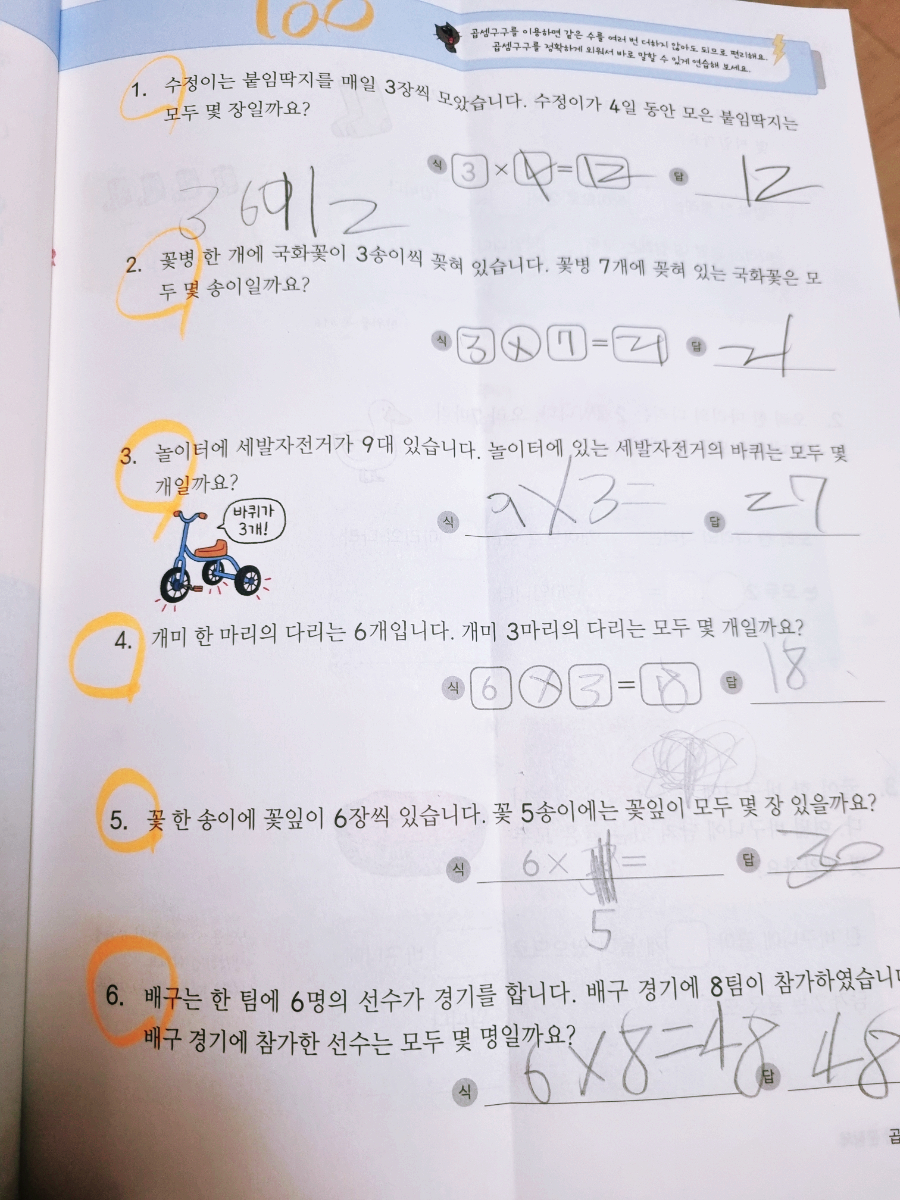 100
곱셈구구를 이용하면 같은 수를 여러 번 더하지 않아도 되므로 편리해요.
곱셈구구를 정확하게 외워서 바로 말할 수 있게 연습해 보세요.
1. 수정이는 붙임딱지를 매일 3장씩 모았습니다. 수정이가 4일 동안 모은 붙임딱지는
모두 몇 장일까요?
식 3 × 4 = 12 답 12
3 6 9 12
2. 꽃병 한 개에 국화꽃이 3송이씩 꽂혀 있습니다. 꽃병 7개에 꽂혀 있는 국화꽃은 모
두 몇 송이일까요?
식 3 × 7 = 21 답 21
3. 놀이터에 세발자전거가 9대 있습니다. 놀이터에 있는 세발자전거의 바퀴는 모두 몇
개일까요?
바퀴가
3개!
식 9 × 3 = 답 27
4. 개미 한 마리의 다리는 6개입니다. 개미 3마리의 다리는 모두 몇 개일까요?
식 6 × 3 = 18 답 18
5. 꽃 한 송이에 꽃잎이 6장씩 있습니다. 꽃 5송이에는 꽃잎이 모두 몇 장 있을까요?
식 6 × = 답 30
5
6. 배구는 한 팀에 6명의 선수가 경기를 합니다. 배구 경기에 8팀이 참가하였습니
배구 경기에 참가한 선수는 모두 몇 명일까요?
식 6 × 8 = 48 답 48
곱